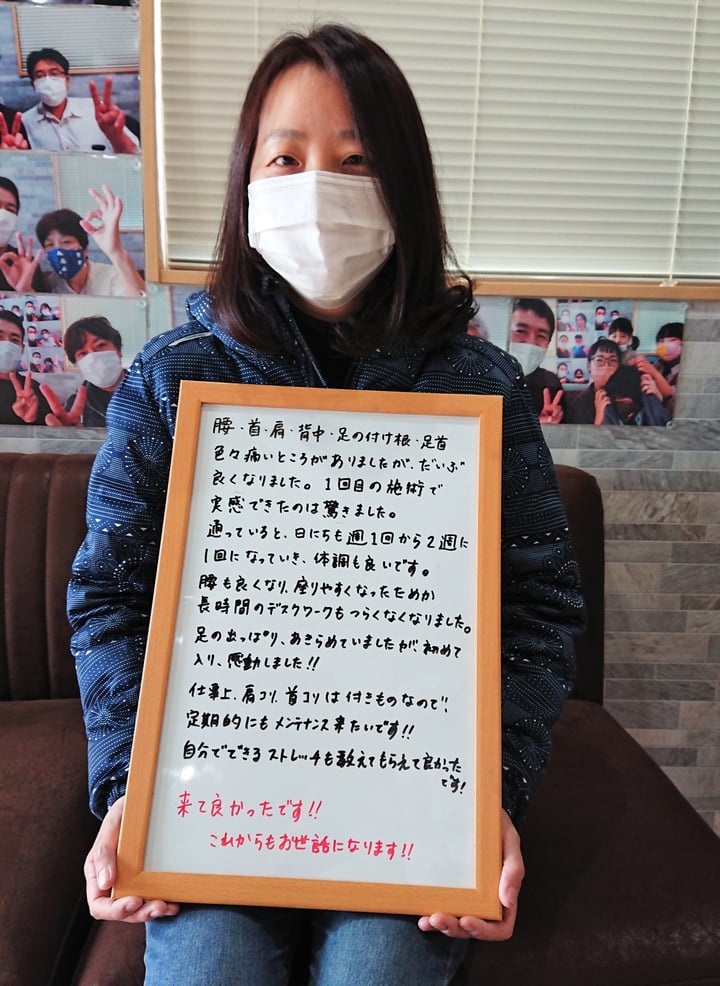 腰・首・肩・背中・足の付け根・足首
色々痛いところがありましたが、だいぶ
良くなりました。1回目の施術で
実感できたのは驚きました。
通っていると、日にちも週1回から2週に
1回になっていき、体調も良いです。
腰も良くなり、座りやすくなったためか
長時間のデスクワークもつらくなくなりました。
足の出っぱり、あきらめていましたが、初めて
入り、感動しました!!
仕事上、肩コリ、首コリは付きものなので、
定期的にもメンテナンス来たいです!!
自分でできるストレッチも教えてもらえて良かった
です!
来て良かったです!!
これからもお世話になります!!